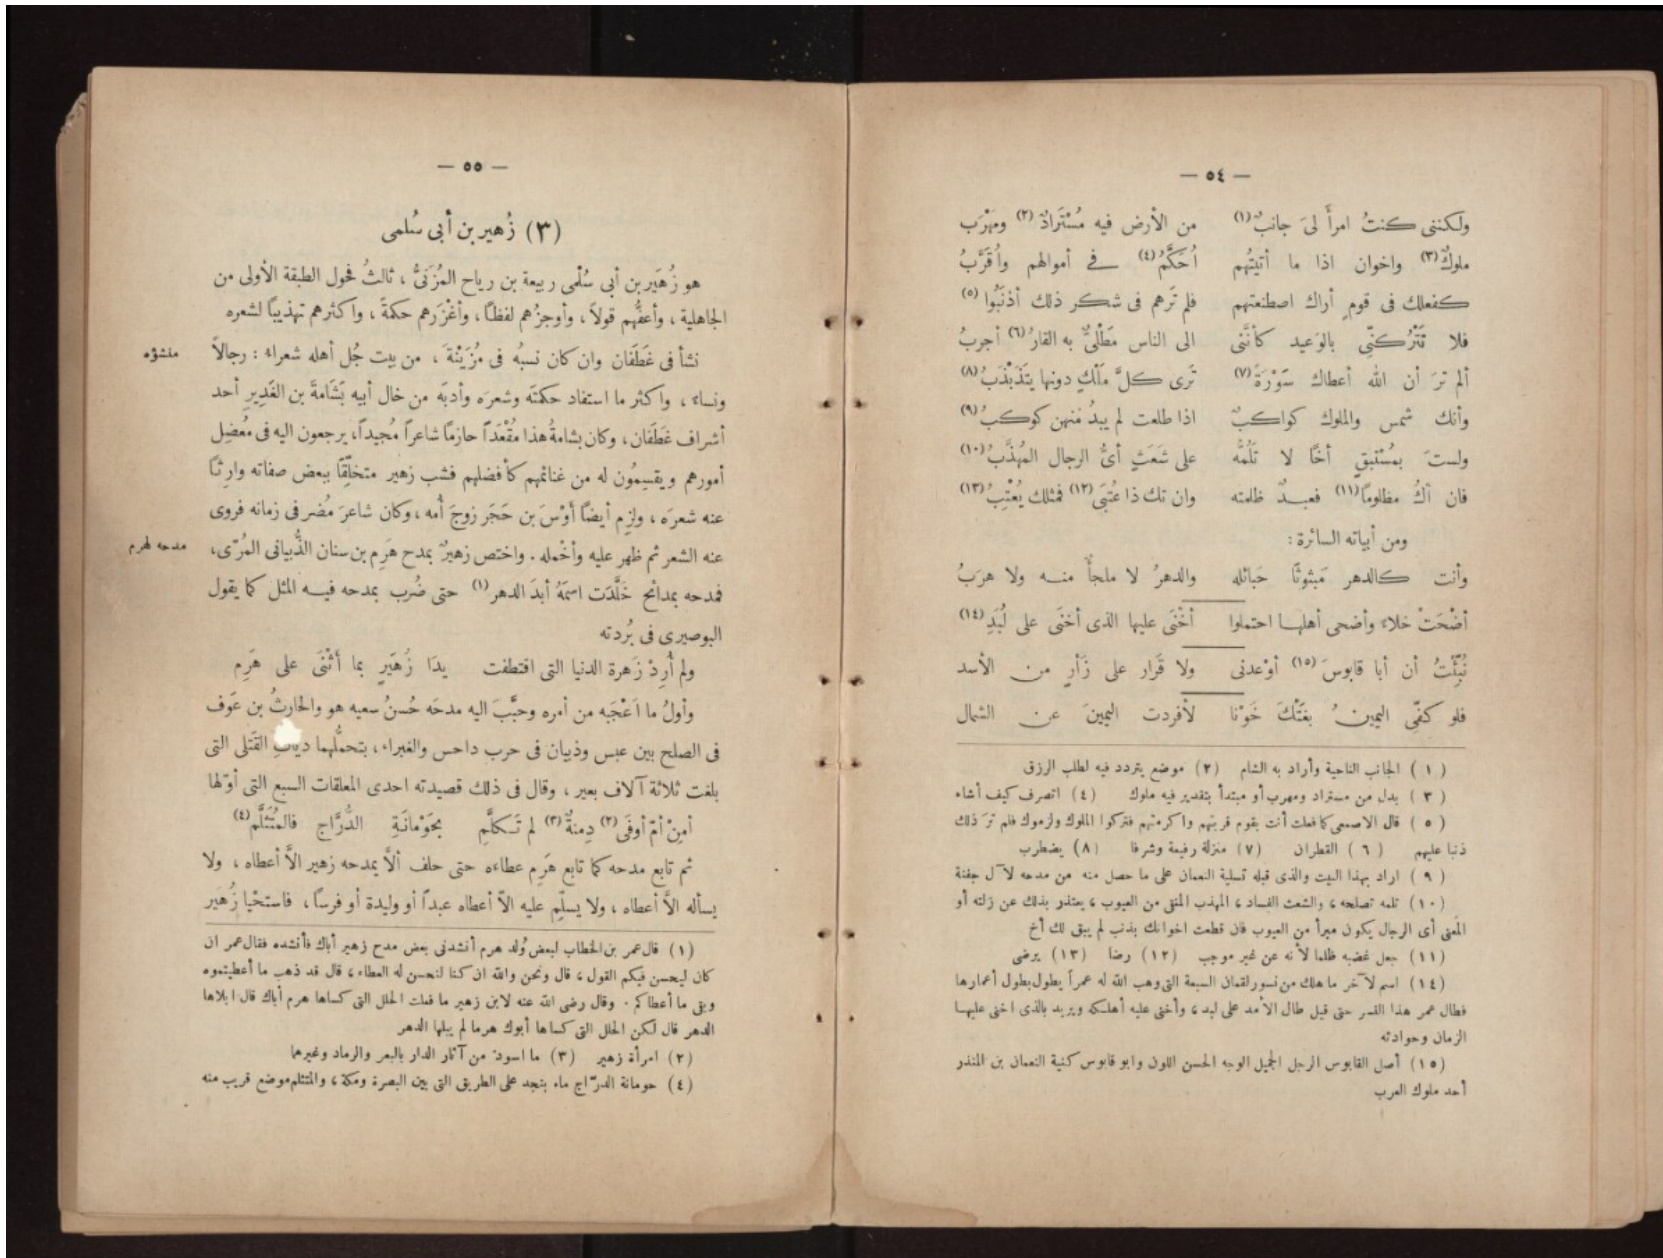 — ٥٤ —
ولكننى كنتُ امرأً لىَ جانبٌ (١) من الأرض فيه مُسْتَرادٌ (٢) ومَهْرَب
ملوكٌ (٣) واخوان اذا ما أتيتُهم أُحَكَّمُ (٤) فى أموالهم وأُقَرَّبُ
كفعلك فى قومٍ أراك اصطنعتهم فلم تَرَهم فى شكر ذلك أذنَبُوا (٥)
فلا تَتْرُكنِّى بالوَعيد كأنَّنى الى الناس مَطْلىٌّ به القارُ (٦) أجربُ
ألم ترَ أن الله أعطاك سَوْرَةً (٧) تَرى كلَّ مَلْكٍ دونها يتَذَبْذَبُ (٨)
وأنك شمس والملوك كواكبٌ اذا طلعت لم يبدُ منهن كوكبُ (٩)
ولستَ بمُسْتَبقٍ أخًا لا تَلُمُّه على شَعَثٍ أىُّ الرجال المُهَذَّبُ (١٠)
فان أكُ مظلومًا (١١) فعبدٌ ظلمته وان تك ذا عُتبَى (١٢) فمثلك يُعْتِبُ (١٣)
ومن أبياته السائرة :
وأنت كالدهر مَبثوثًا حَبائله والدهرُ لا ملجأٌ منه ولا هرَبُ
أضْحَتْ خلاء وأضحى أهلها احتملوا أخْنَى عليها الذى أخنَى على لُبَدِ (١٤)
نُبّئْتُ أن أبا قابوسَ (١٥) أوْعدنى ولا قَرار على زَأرٍ من الأسد
فلو كفِّى اليمينُ بغَتْكَ خَوْنا لأفردت اليمينَ عن الشمال
( ١ ) الجانب الناحية وأراد به الشام (٢) موضع يتردد فيه لطلب الرزق
( ٣ ) بدل من مستراد ومهرب أو مبتدأ بتقدير فيه ملوك (٤) اتصرف كيف أشاء
( ٥ ) قال الاصمعى كما فعلت أنت بقوم قربتهم واكرمتهم فتركوا الملوك ولزموك فلم ترَ ذلك
ذنبا عليهم ( ٦ ) القطران (٧) منزلة رفيعة وشرفا (٨) يضطرب
( ٩ ) اراد بهذا البيت والذى قبله تسلية النعمان على ما حصل منه من مدحه لآل جفنة
(١٠) تلمه تصلحه ، والشعث الفساد ، المهذب المنقى من العيوب ، يعتذر بذلك عن زلته أو
المعنى أى الرجال يكون مبرأ من العيوب فان قطعت اخوانك بذنب لم يبق لك أخ
(١١) جعل غضبه ظلما لأنه عن غير موجب (١٢) رضا (١٣) يرضى
(١٤) اسم لآخر ما هلك من نسور لقمان السبعة التى وهب الله له عمراً يطول بطول أعمارها
فطال عمر هذا النسر حتى قيل طال الأمد على لبد ، وأخنى عليه أهلكه ويريد بالذى اخنى عليها
الزمان وحوادثه
(١٥) أصل القابوس الرجل الجميل الوجه الحسن اللون وابو قابوس كنية النعمان بن المنذر
أحد ملوك العرب
— ٥٥ —
(٣) زُهير بن أبى سُلمى
هو زُهَير بن أبى سُلْمى ربيعة بن رياح المُزَنىُّ ، ثالثُ فحول الطبقة الأولى من
الجاهلية ، وأعفُّهم قولاً ، وأوجزُهم لفظًا ، وأغْزَرهم حكمةً ، واكثرهم تهذيبًا لشعره
منشؤه
نشأ فى غَطَفان وان كان نسبُه فى مُزَيْنَةَ ، من بيت جُل أهله شعراء : رجالاً
ونساء ، واكثر ما استفاد حكمتَه وشعرَه وأدبَه من خال أبيه بَشَامةَ بن الغَدِيرِ أحد
أشراف غَطَفان ، وكان بشامةُ هذا مُقْعَداً حازمًا شاعراً مُجيداً ، يرجعون اليه فى مُعضِل
أمورهم ويقسِمُون له من غنائمهم كأفضلهم فشب زهير متخلّقًا ببعض صفاته وارِثًا
عنه شعرَه ، ولزم أيضًا أوْسَ بن حَجَر زوجَ أُمه ، وكان شاعرَ مُضر فى زمانه فروى
مدحه لهرم
عنه الشعر ثم ظهر عليه وأخْمله . واختص زهيرٌ بمدح هَرِم بن سنان الذُّبيانى المُرّى ،
فمدحه بمدائح خَلَّدَت اسمَهُ أبدَ الدهر (١) حتى ضُرب بمدحه فيه المثل كما يقول
البوصيرى فى بُردته
ولم أُرِدْ زَهرة الدنيا التى اقتطفت يدَا زُهَيرٍ بما أثْنَى على هَرِم
وأولُ ما اَعْجَبَه من أمره وحبَّبَ اليه مدحَه حُسنُ سعيه هو والحارثُ بن عَوف
فى الصلح بين عبس وذبيان فى حرب داحس والغبراء ، بتحمُّلهما دياتِ القَتلى التى
بلغت ثلاثة آلاف بعير ، وقال فى ذلك قصيدته احدى المعلقات السبع التى أوّلها
أمِنْ أمّ أوفَى (٢) دِمنةٌ (٣) لم تَكلَّمِ بحَوْمانَةِ الدُّرَّاج فالمُتَثَلَّمِ (٤)
ثم تابع مدحه كما تابع هَرِم عطاءه حتى حلف ألاَّ يمدحه زهير الاَّ أعطاه ، ولا
يسأله الاَّ أعطاه ، ولا يسلّم عليه الاّ أعطاه عبداً أو وليدة أو فرسًا ، فاستحْيا زُهَير
(١) قال عمر بن الخطاب لبعض وُلد هرم أنشدنى بعض مدح زهير أباك فأنشده فقال عمر ان
كان ليحسن فيكم القول ، قال ونحن والله ان كنا لنحسن له العطاء ، قال قد ذهب ما أعطيتموه
وبقى ما أعطاكم . وقال رضى الله عنه لابن زهير ما فعلت الحلل التى كساها هرم أباك قال ابلاها
الدهر قال لكن الحلل التى كساها أبوك هرما لم يبلها الدهر
(٢) امرأة زهير (٣) ما اسود من آثار الدار بالبعر والرماد وغيرهما
(٤) حومانة الدرّاج ماء بنجد على الطريق التى بين البصرة ومكة ، والمتثلم موضع قريب منه